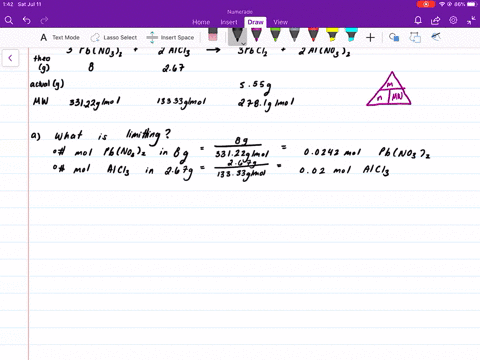 1:42 Sat Jul 11
66%
Numerade
Home Insert Draw View
A Text Mode Lasso Select Insert Space
3 Pb(NO3)2 + 2 AlCl3 → 3PbCl2 + 2 Al(NO3)2
theo (g) 8 2.67
actual (g) 5.55g
MW 331.22g/mol 133.33g/mol 278.1g/mol
m
n MW
a) What is limiting?
# mol Pb(NO3)2 in 8g = 8g / 331.22g/mol = 0.0242 mol Pb(NO3)2
# mol AlCl3 in 2.67g = 2.67g / 133.33g/mol = 0.02 mol AlCl3